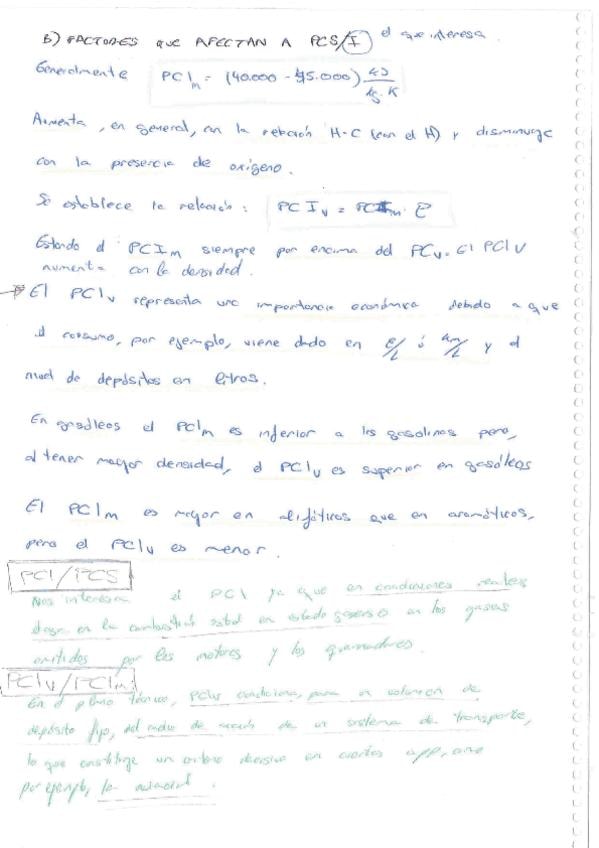 B) FACTORES QUE AFECTAN A PCS/I el que interesa.
Generalmente PCIm = (40.000 - 45.000) kJ/kg·K
Aumenta, en general, con la relación H-C (con el H) y disminuye
con la presencia de oxígeno.
Se establece la relación: PCIv = PCIm · ρ
Estando el PCIm siempre por encima del PCv. El PCIv
aumenta con la densidad.
→ El PCIv representa una importancia económica debido a que
el consumo, por ejemplo, viene dado en €/L ó km/L y el
nivel de depósitos en litros.
En gasóleos el PCIm es inferior a las gasolinas pero,
al tener mayor densidad, el PCIv es superior en gasóleos
El PCIm es mayor en alifáticos que en aromáticos,
pero el PCIv es menor.
PCI/PCS
Nos interesa el PCI ya que en condiciones reales
en la combustión en estado gaseoso en los gases
emitidos por los motores y los quemadores.
PCIv/PCIm
En el plano técnico, PCIv condiciona, para un volumen de
depósito fijo, del radio de acción de un sistema de transporte,
lo que constituye un criterio decisivo en ciertas app, como
por ejemplo, la aviación.